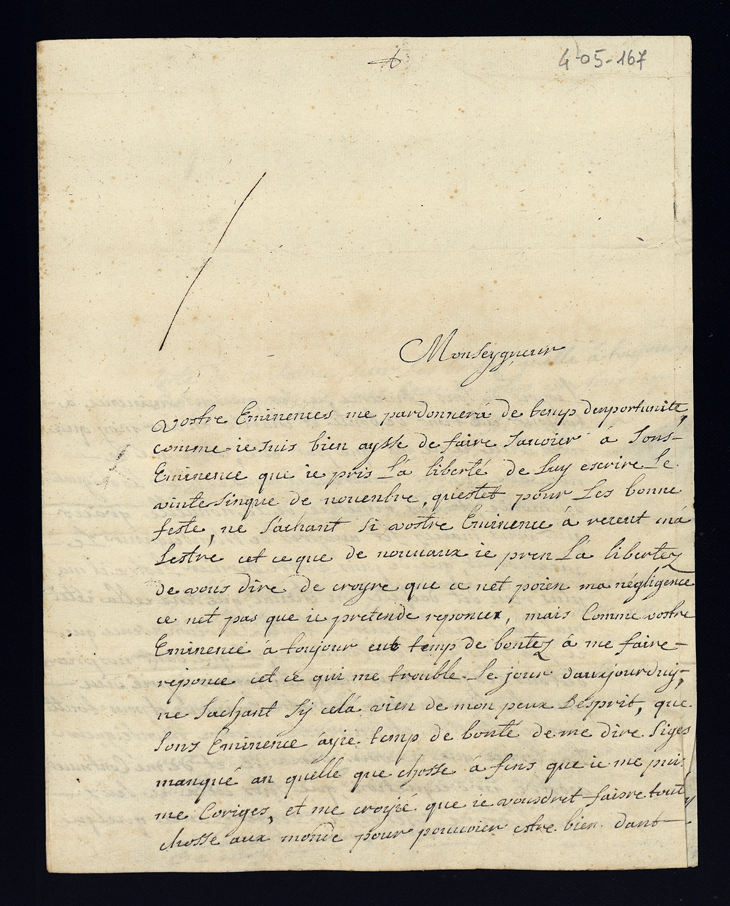 4-05-167
Monseygneur
vostre Eminences me pardonnerá de temp dinportunité,
comme ie suis bien aysse de faire Sauoier á Sons-
Eminence que ie pris Lá liberté de Luy escrire Le
vinte Sinque de nouenbre, questet pour Les bonne
feste, ne Sachant Si vostre Eminence á recent má
Lestre cet ce que de nouuaux ie pren Lá libertez
de vous dire de croyre que ce net poien ma negligence
ce net pas que ie pretende reponce, mais Comme vostre
Eminence á toujour eut temp de bontez á me faire-
reponce cet ce qui me trouble Le jour daujourduy,
ne Sachant Sy celá vien de mon peux Desprit, que
Sons Eminence áyie temp de bonté de me dire Siges
manqué an quelle que chosse á fins que ie me puis
me Coriges, et me croyée que ie voudret faisre tout
chosse aux monde pour pouuoier estre bien dant-